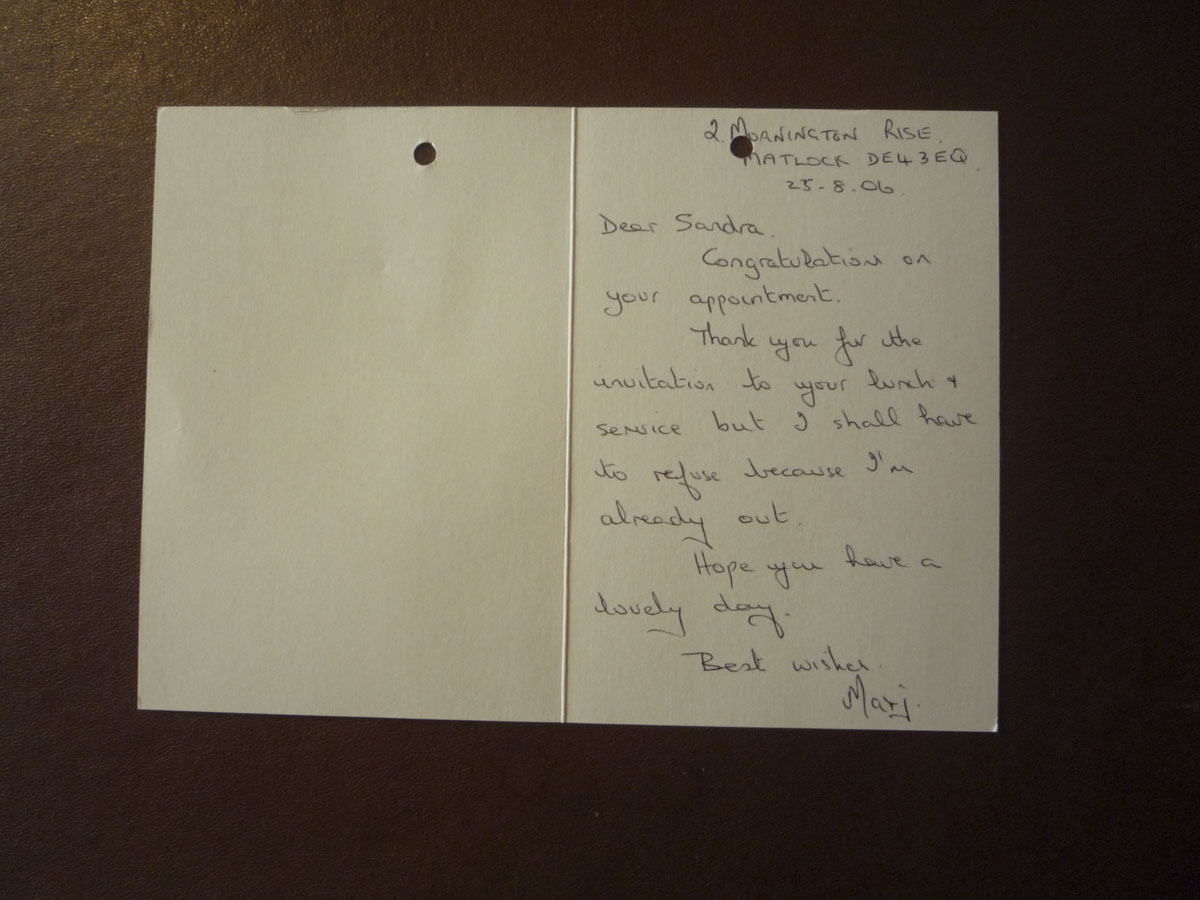 2 MORNINGTON RISE.
MATLOCK DE43EQ.
25-8-06.
Dear Sandra.
Congratulation on
your appointment.
Thank you for the
invitation to your lunch +
service but I shall have
to refuse because I'm
already out.
Hope you have a
lovely day.
Best wishes.
Marj.